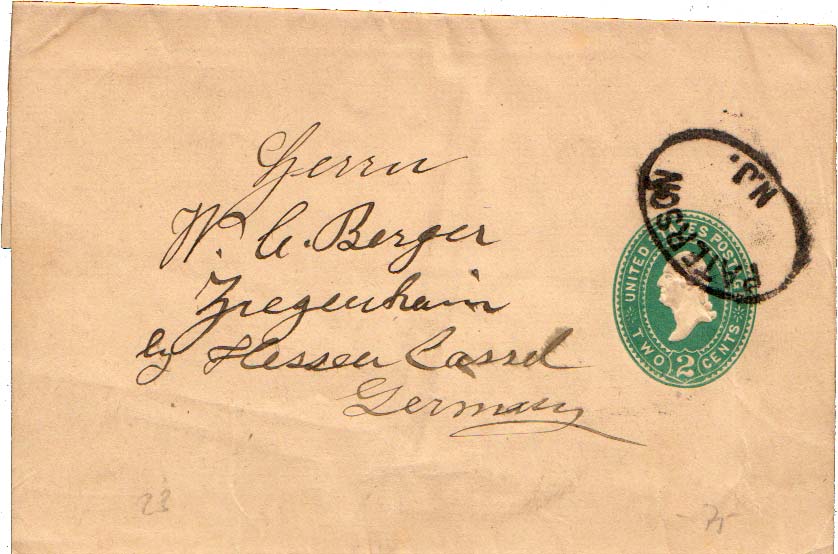 Herrn
W. C. Berger
Ziegenhain
by Hessen Cassel
Germany
PATERSON
N.J.
UNITED STATES POSTAGE
TWO 2 CENTS
23